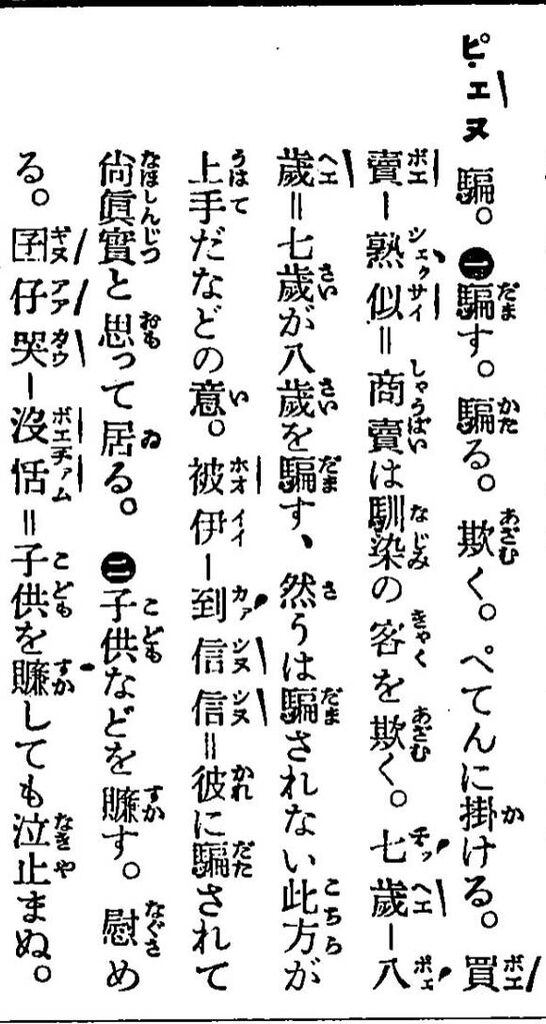 ピエヌ 騙。 ㊀騙す。騙る。欺く。ぺてんに掛ける。買
賣ー熟似=商賣は馴染の客を欺く。七歲ー八
歲=七歲が八歲を騙す、然うは騙されない此方が
上手だなどの意。被伊ー到信信=彼に騙されて
尙眞實と思って居る。 ㊁子供などを賺す。慰め
る。囝仔哭ー沒恬=子供を賺しても泣止まぬ。